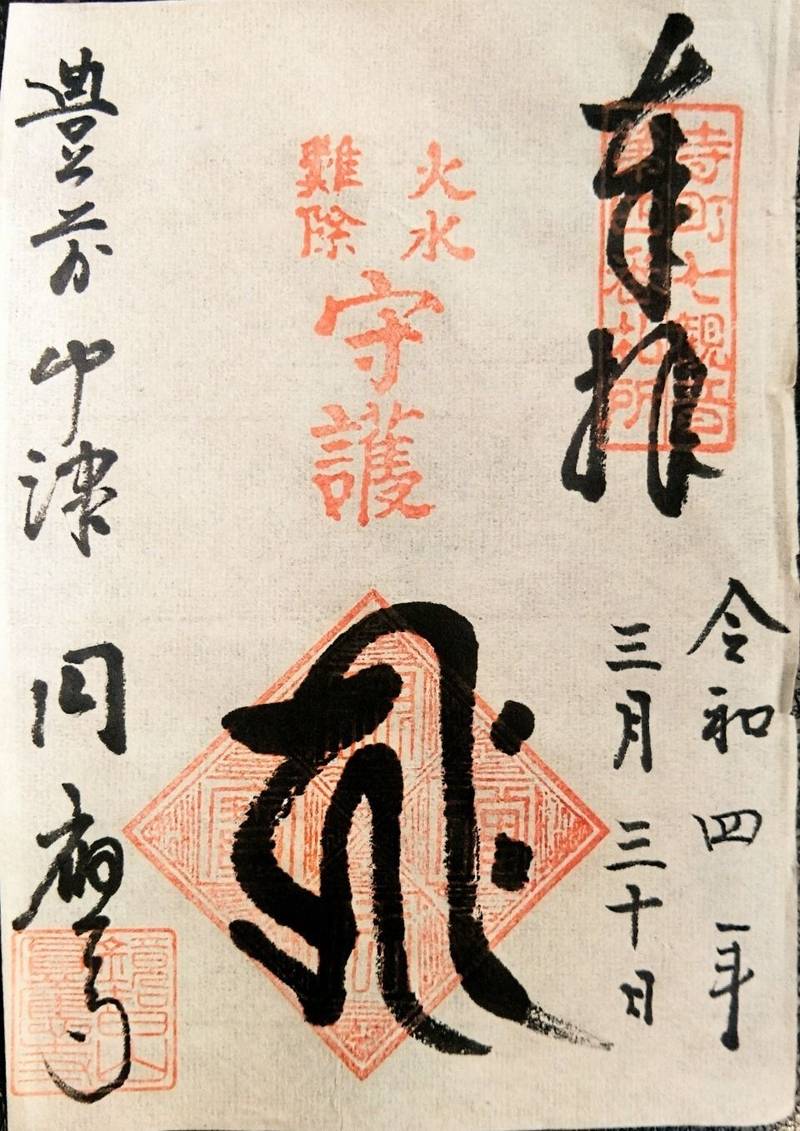 奉拝
寺町七観音
第四番札所
令和四年
三月三十日
火水
難除
守護
𑖮𑖿𑖨𑖱𑖾
豊前 中津 円應寺